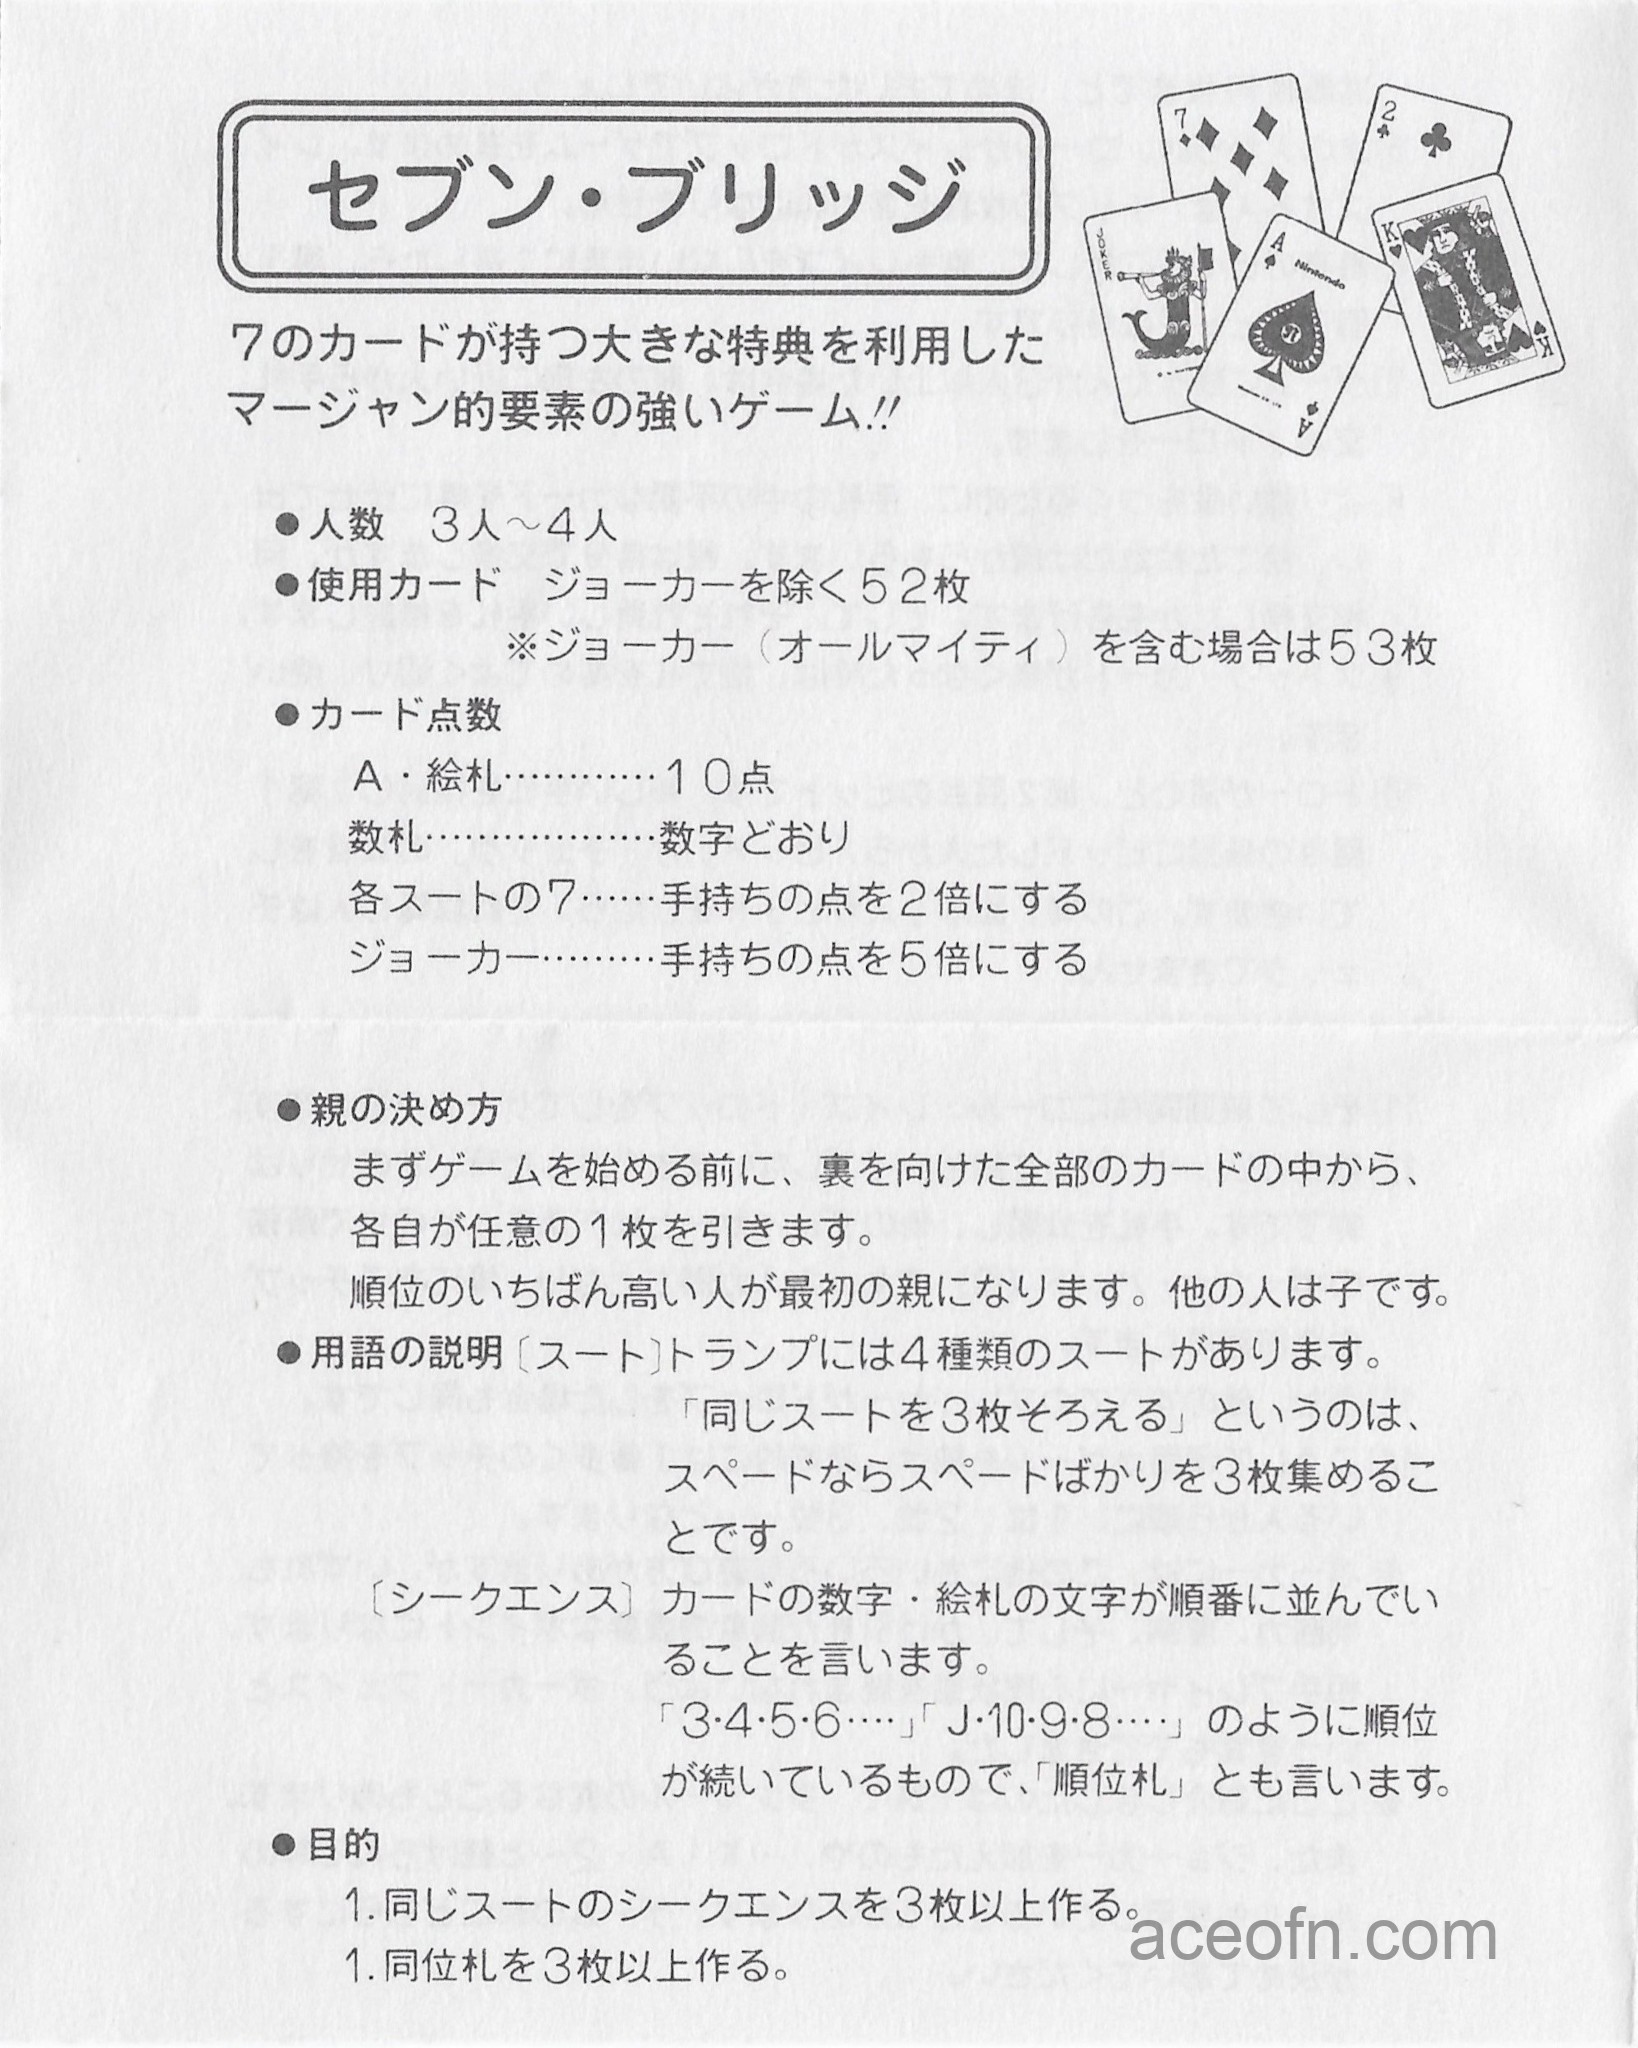 セブン・ブリッジ
7
2
JOKER
A
Nintendo
K
K
A
7のカードが持つ大きな特典を利用した
マージャン的要素の強いゲーム!!
●人数 3人～4人
●使用カード ジョーカーを除く52枚
※ジョーカー（オールマイティ）を含む場合は53枚
●カード点数
A・絵札…………10点
数札………………数字どおり
各スートの7……手持ちの点を2倍にする
ジョーカー………手持ちの点を5倍にする
●親の決め方
まずゲームを始める前に、裏を向けた全部のカードの中から、
各自が任意の1枚を引きます。
順位のいちばん高い人が最初の親になります。他の人は子です。
●用語の説明〔スート〕トランプには4種類のスートがあります。
「同じスートを3枚そろえる」というのは、
スペードならスペードばかりを3枚集めるこ
とです。
〔シークエンス〕カードの数字・絵札の文字が順番に並んでい
ることを言います。
「3・4・5・6‥‥」「J・10・9・8‥‥」のように順位
が続いているもので、「順位札」とも言います。
●目的
1.同じスートのシークエンスを3枚以上作る。
1.同位札を3枚以上作る。
aceofn.com